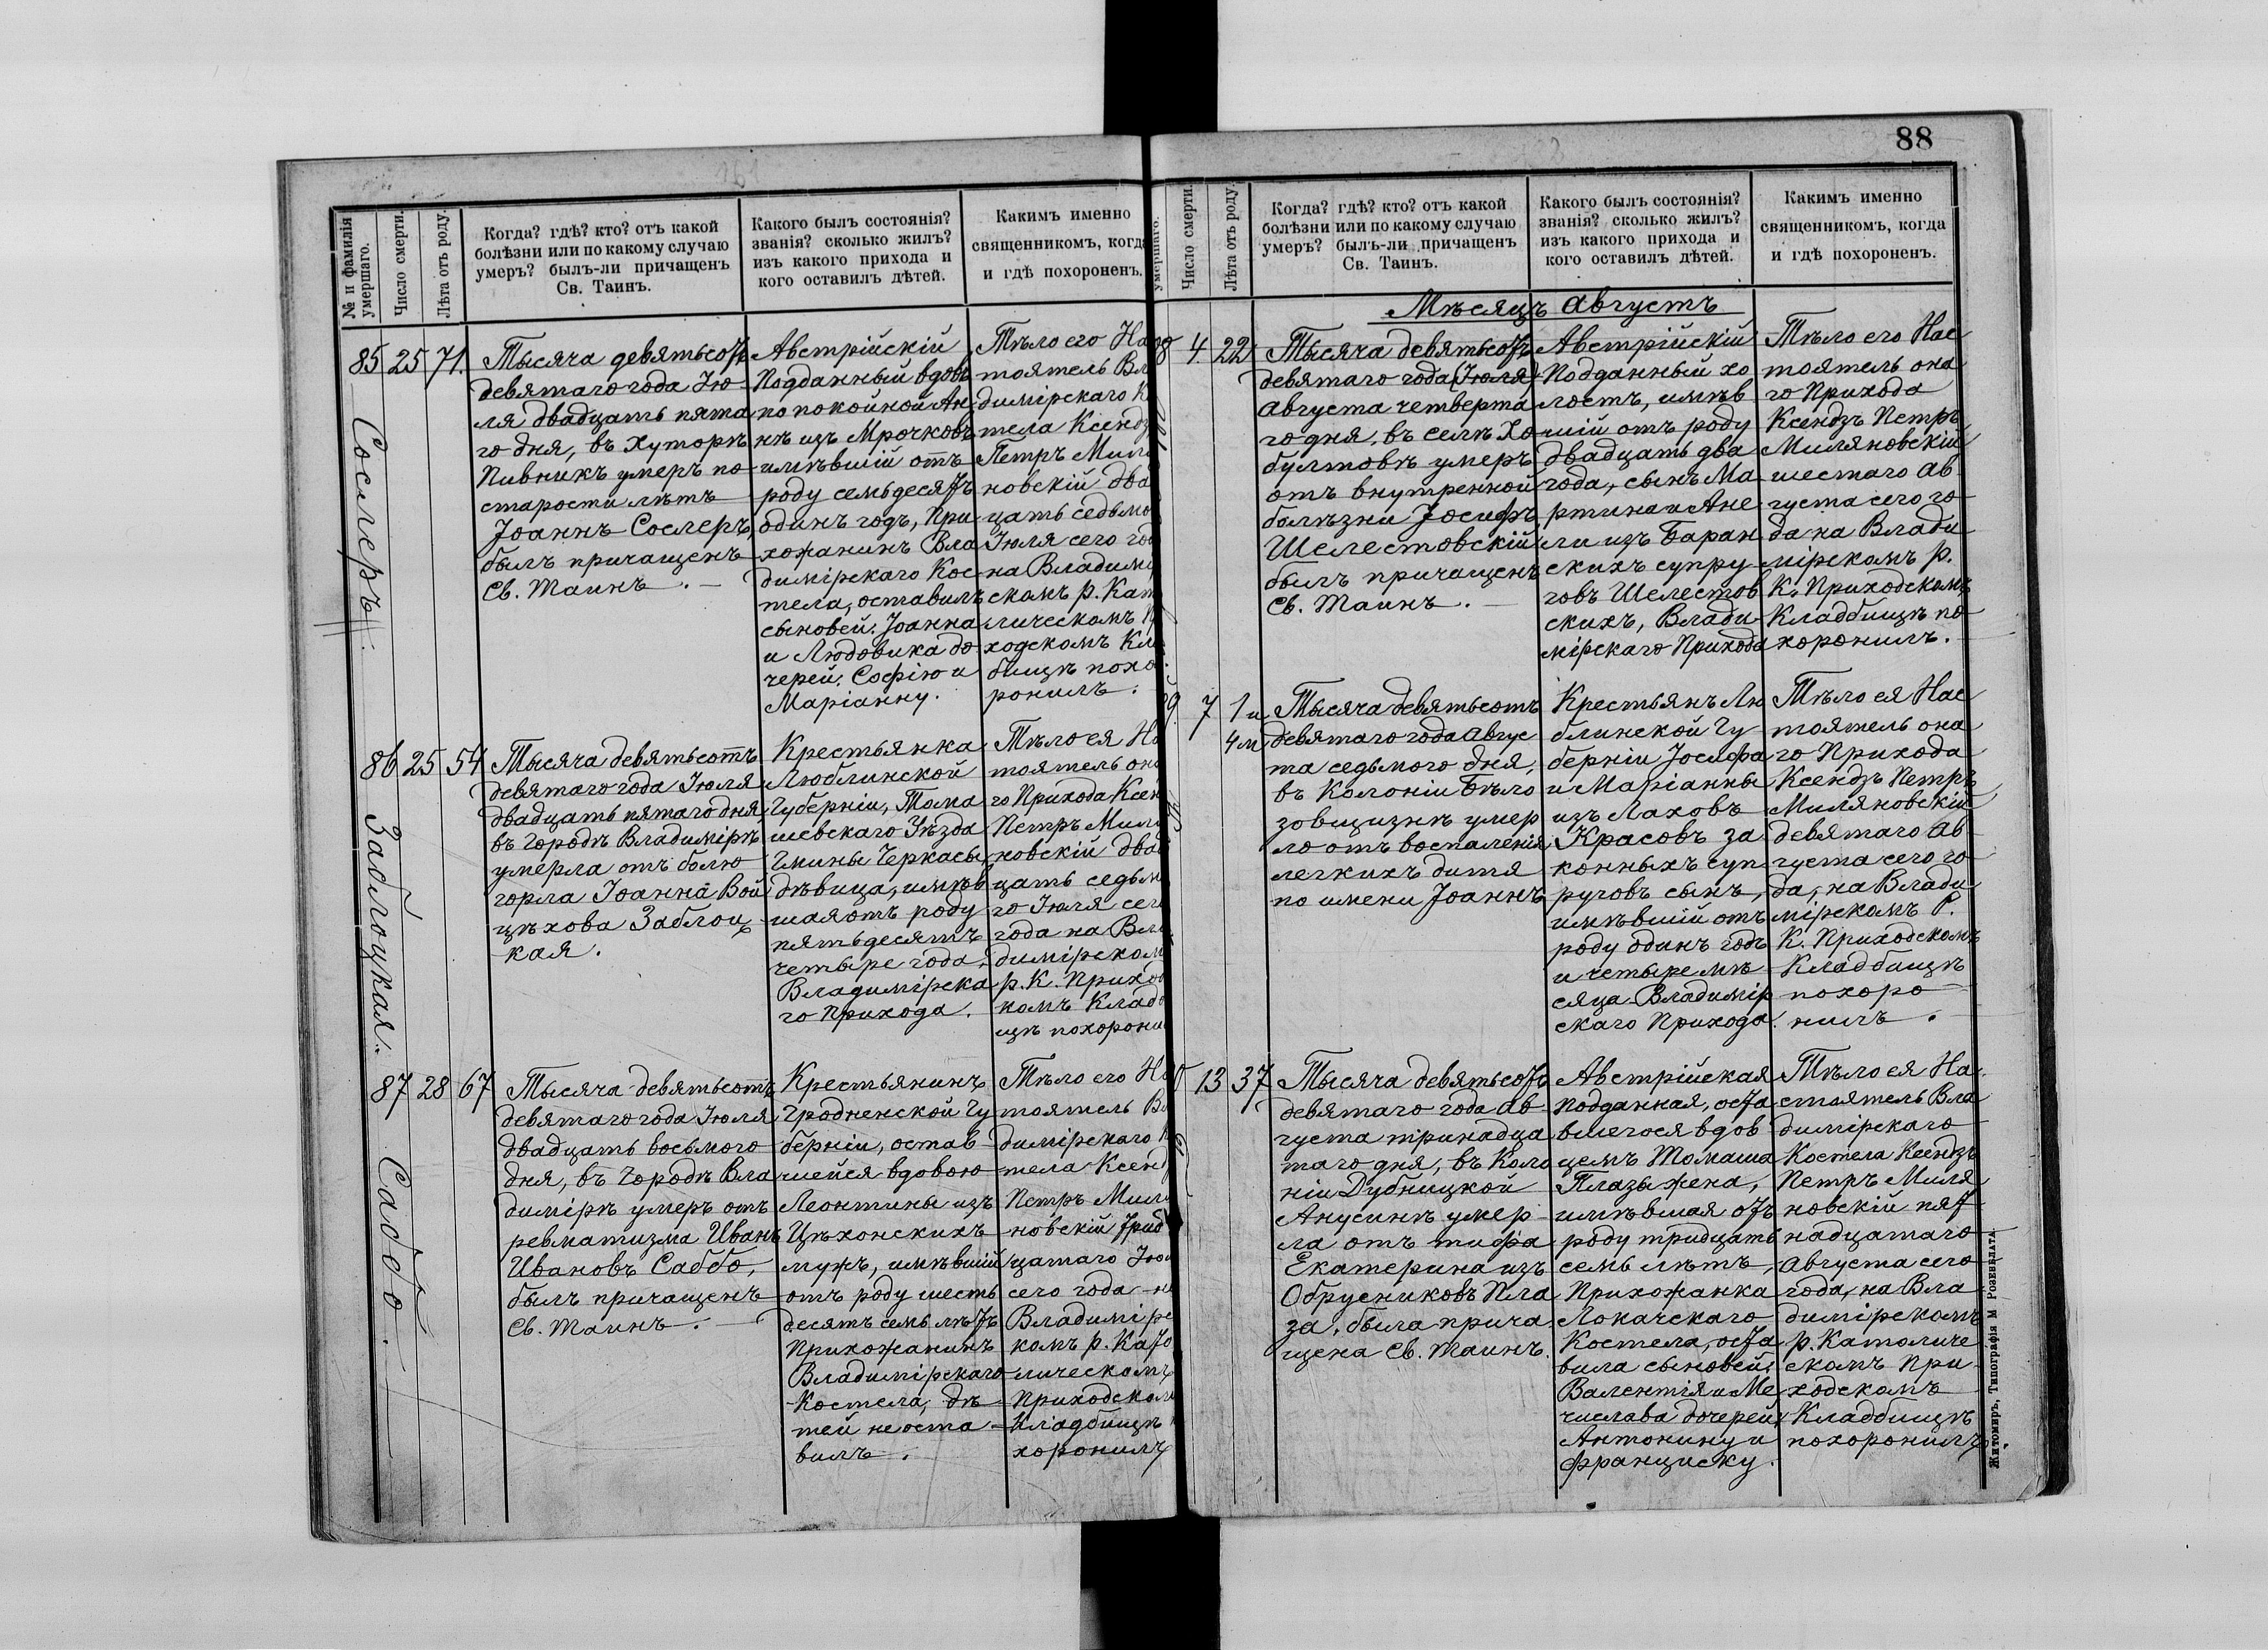 88
№ и фамилія умершаго.
Число смерти.
Лѣта отъ роду.
Когда? гдѣ? кто? отъ какой
болѣзни или по какому случаю
умеръ? былъ-ли причащенъ
Св. Таинъ.
Какого былъ состоянія?
званія? сколько жилъ?
изъ какого прихода и
кого оставилъ дѣтей.
Какимъ именно
священникомъ, когд
и гдѣ похороненъ.
85 25 71.
Сослеръ
Тысяча девятьсотъ
девятаго года Ію
ля двадцать пята
го дня, въ Хуторѣ
Пивникъ умеръ по
старости лѣтъ
Іоаннъ Сослеръ,
былъ причащенъ
Св. Таинъ.
Австрійскій
Подданный вдовъ
по покойной Ан
нѣ изъ Мрочковъ
имѣвшій отъ
роду семьдесятъ
одинъ годъ, При
хожанинъ Вла
димірскаго Кос
тела, оставилъ
сыновей: Іоанна
и Людовика до
черей: Софію и
Маріанну.
Тѣло его На
тоятель Вл
димірскаго К
тела Ксендз
Петръ Миля
новскій два
цать седьмо
Іюля сего го
на Владимі
скомъ р. Кат
лическомъ П
ходскомъ Кла
бищѣ похо
ронилъ.
86 25 54
Заблоцкая.
Тысяча девятьсотъ
девятаго года Іюля
двадцать пятаго дня,
въ Городѣ Владимірѣ
умерла отъ болю
горла Іоанна Вой
цѣхова Заблоц
кая.
Крестьянка
Люблинской
Губерніи, Тома
шевскаго Уѣзда
Гмины Черкасы,
дѣвица, имѣв
шая отъ роду
пятьдесятъ
четыре года,
Владимірска
го Прихода.
Тѣло ея На
тоятель она
го Прихода Ксен
Петръ Миля
новскій два
цать седьм
го Іюля сего
года на Вла
димірском
р. К. Приход
комъ Кладб
щѣ похорони
87 28 67
Саббо.
Тысяча девятьсотъ
девятаго года Іюля
двадцать восьмого
дня, въ Городѣ Вла
димірѣ умеръ отъ
ревматизма Иванъ
Ивановъ Саббо,
былъ причащенъ
Св. Таинъ.
Крестьянинъ
Гродненской Гу
берніи, остав
шейся вдовою
Леонтины изъ
Цѣхонскихъ
мужъ, имѣвшій
отъ роду шесть
десятъ семь лѣтъ
Прихожанинъ
Владимірскаго
Костела, дѣ
тей не оста
вилъ.
Тѣло его На
тоятель Вл
димірскаго К
тела Ксенд
Петръ Миля
новскій трид
цатаго Іюл
сего года на
Владимірс
комъ р. Като
лическомъ
Приходском
Кладбищѣ
хоронилъ
умершаго.
Число смерти.
Лѣта отъ роду.
Когда? гдѣ? кто? отъ какой
болѣзни или по какому случаю
умеръ? былъ-ли причащенъ
Св. Таинъ.
Какого былъ состоянія?
званія? сколько жилъ?
изъ какого прихода и
кого оставилъ дѣтей.
Какимъ именно
священникомъ, когда
и гдѣ похороненъ.
Мѣсяцъ Августъ
8 4 22
Тысяча девятьсотъ
девятаго года (Іюля)
Августа четверта
го дня, въ селѣ Хо
бултовѣ умеръ
отъ внутренной
болѣзни Іосифъ
Шелестовскій,
былъ причащенъ
Св. Таинъ.
Австрійскій
Подданный хо
лостъ, имѣв
шій отъ роду
двадцать два
года, сынъ Ма
ртина и Ане
ли изъ Баран
скихъ супру
говъ Шелестов
скихъ, Влади
мірскаго Прихода
Тѣло его Нас
тоятель она
го Прихода
Ксендзъ Петръ
Миляновскій
шестаго Ав
густа сего го
да на Влади
мірскомъ р.
К. Приходскомъ
Кладбищѣ по
хоронилъ.
9 7 1 и
4 м
Тысяча девятьсотъ
девятаго года Авгус
та седьмого дня,
въ Колоніи Бѣло
зовщизнѣ умер
ло отъ воспаленія
легкихъ дитя
по имени Іоаннъ
Крестьянъ Лю
блинской Гу
берніи Іосифа
и Маріанны
изъ Лаховъ
Красовъ за
конныхъ суп
руговъ сынъ,
имѣвшій отъ
роду одинъ годъ
и четыре мѣ
сяца Владимір
скаго Прихода.
Тѣло ея Нас
тоятель она
го Прихода
Ксендзъ Петръ
Миляновскій
девятаго Ав
густа сего го
да, на Влади
мірскомъ Р.
К. Приходскомъ
Кладбищѣ
похоро
нилъ.
13 37
Тысяча девятьсотъ
девятаго года Ав
густа тринадца
таго дня, въ Коло
ніи Дубницкой
Анусинѣ умер
ла отъ тифа
Екатерина изъ
Обрусниковъ Пла
за, была прича
щена Св. Таинъ.
Австрійская
подданная, оста
вшегося вдов
цемъ Томаша
Плазы жена,
имѣвшая отъ
роду тридцать
семь лѣтъ,
Прихожанка
Локачскаго
Костела, оста
вила сыновей:
Валентія и Ме
числава дочерей:
Антонину и
Франциску.
Тѣло ея На
стоятель Вла
димірскаго
Костела Ксендзъ
Петръ Миля
новскій пят
надцатаго
Августа сего
года, на Вла
димірскомъ
р. Католиче
скомъ При
ходскомъ
Кладбищѣ
похоронилъ.
Житомиръ, Типографія М Розенблата